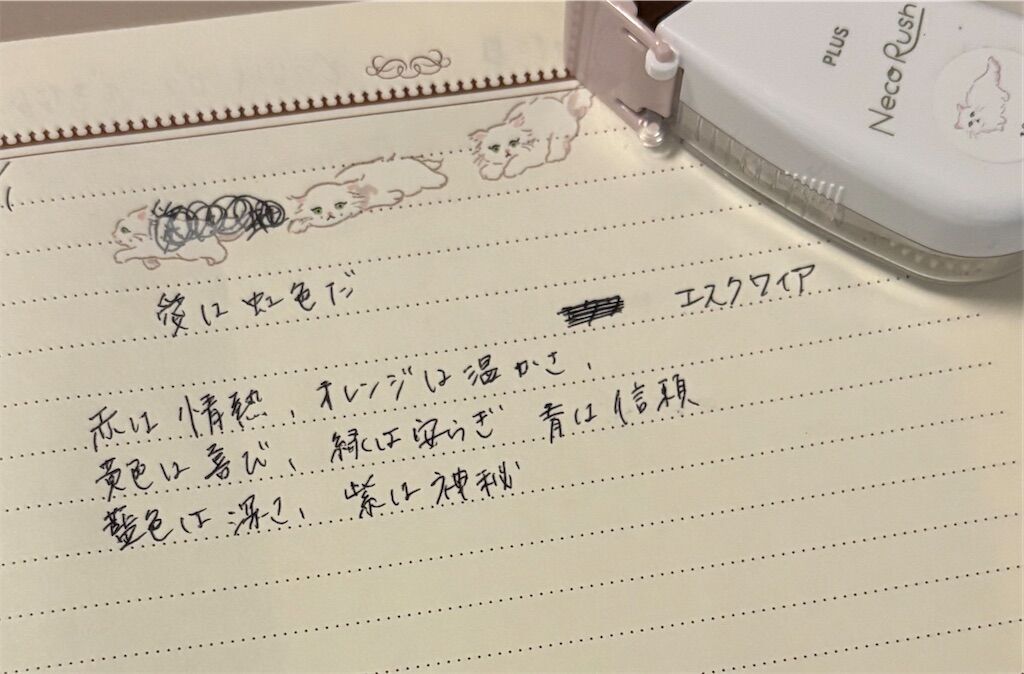 PLUS
NecoRush
愛は虹色だ
エスクワイア
赤は情熱、オレンジは温かさ、
黄色は喜び、緑は安らぎ 青は信頼
藍色は深さ、紫は神秘